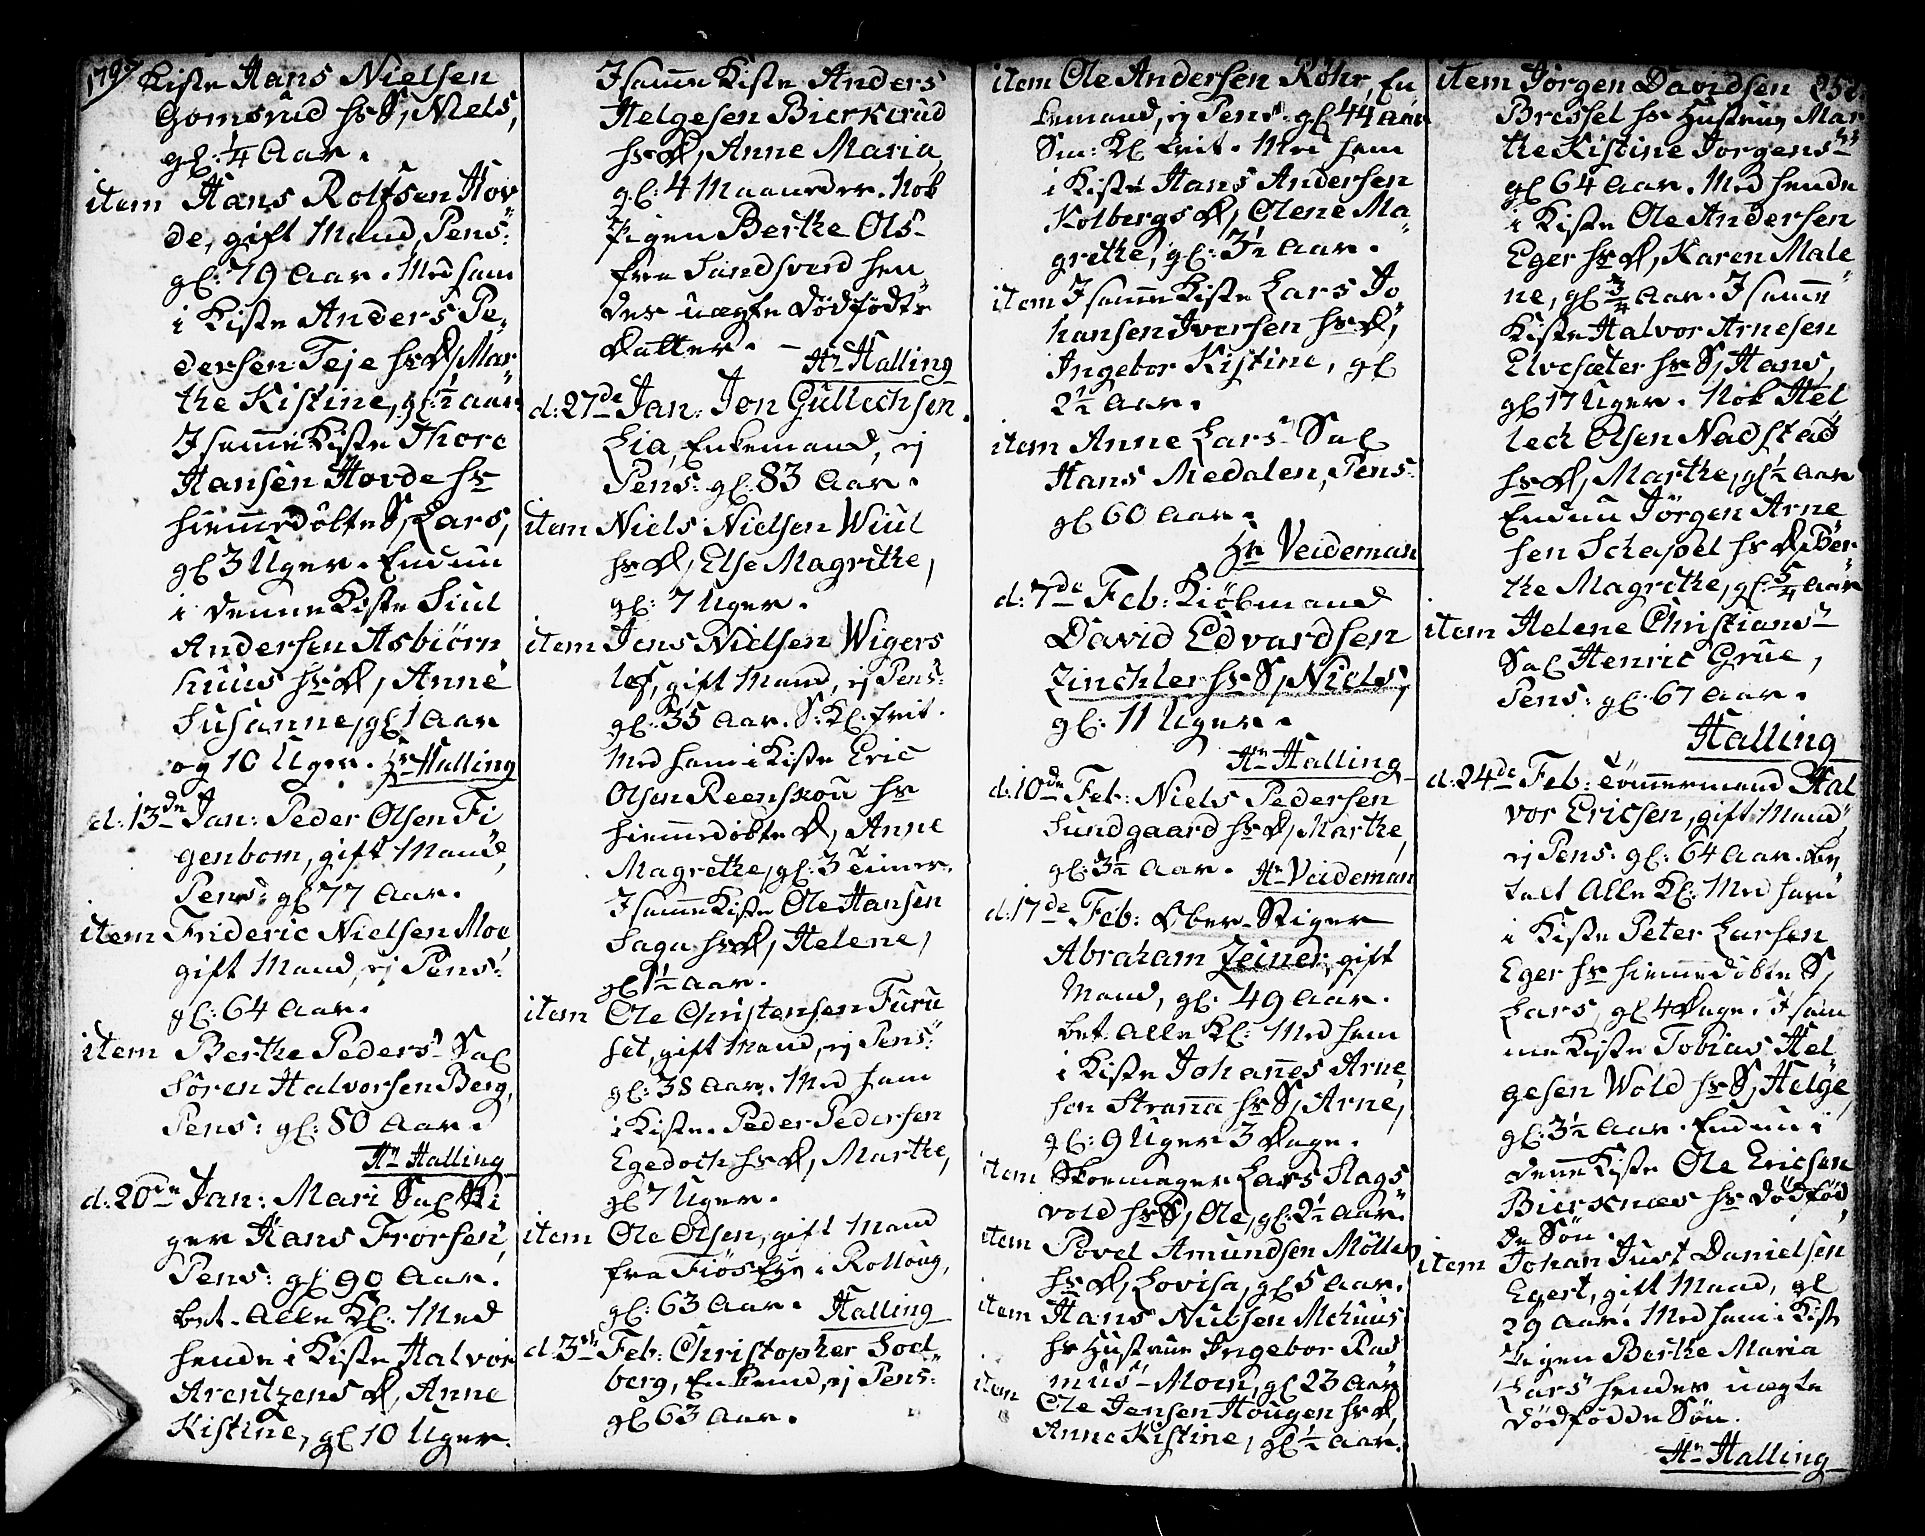 Kiste Hans Nielsen
Gomsrud hs S, Niels,
gl: 1/4 Aar.
item Hans Rolfsen Hov
de, gift Mand, Pens:
gl: 79 Aar. Med ham
i Kiste Anders Pe
dersen Teje hs D, Mar
the Kistine, gl: 1/2 aar
I samme Kiste Thore
Hansen Hovde hs
hiemmedøbte S, Lars,
gl 3 Uger. Endnu
i denne Kiste Siul
Andersen Asbiørn
huus hs D, Anne
Susanne, gl 1 Aar
og 10 Uger. Hr Halling
d: 13de Jan: Peder Olsen Fi
genbom, gift Mand,
Pens: gl 77 Aar.
item Frideric Nielsen Moe,
gift Mand, ej Pens:
gl: 64 Aar.
item Berthe Peders: Sal
Sören Halvorsen Berg,
Pens: gl: 80 Aar.
Hr Halling
d: 20de Jan: Mari Sal Sti
ger Hans Frorsen,
Pens: gl 90 Aar.
bet. Alle Kl: Med
hende i Kiste Halvor
Arentzens D, Anne
Kistine, gl 10 Uger.
I samme Kiste Anders
Helgesen Bierkerud
hs D, Anne Maria,
gl: 4 Maaneder. Nok
Pigen Berthe Ols-
fra Sandsverd hen
des uægte dödfödte
Datter. - Hr Halling
d: 27de Jan: Jon Gullechsen
Lia, Enkemand, ej
Pens: gl: 83 Aar.
item Niels Nielsen Wiul
hs D, Else Magrethe,
gl: 7 Uger.
item Jens Nielsen Wigers
løf, gift Mand, ej Pens:
gl: 35 Aar. S: Kl: frit.
Med ham i Kiste Eric
Olsen Reenskou hs
hiemmedöbte D, Anne
Magrethe, gl: 3 Timer.
I samme Kiste Ole Hansen
Saga hs D, Helene,
gl 1 1/2 Aar.
item Ole Christensen Furu
set, gift Mand, ej Pens:
gl: 38 Aar. Med ham
i Kiste Peder Pedersen
Egedoch hs D, Marthe,
gl 7 Uger.
item Ole Olsen, gift Mand
fra Fiøs i Rolloug,
gl: 63 Aar. Halling
d: 3de Feb: Christopher Sod
berg, Enkemd, ej Pens:
gl 63 Aar.
item Ole Andersen Röhr, En
kemand, ej Pens: gl 44 Aar
Sm: Kl frit. Med ham
i Kiste Hans Andersen
Kolbergs D, Olene Ma
grethe, gl: 3 1/2 Aar.
item I samme Kiste Lars Jo
hansen Iversen hs D,
Ingebor Kistine, gl
2 1/2 Aar.
item Anne Lars Sal
Hans Medalen, Pens:
gl 60 Aar.
Hr Veideman
d: 7de Feb: Kiöbmand
David Edvardsen
Zinchler hs S, Niels,
gl: 11 Uger.
Hr Halling
d: 10de Feb: Niels Pedersen
Sundgaard hs D, Marthe,
gl: 3 1/2 Aar. Hr Veideman
d: 17de Feb: Ober-Stiger
Abraham Zeiner, gift
Mand, gl: 49 Aar.
bet: Alle Kl: Med ham
i Kiste Johannes Arne
sen Stranna hs S, Arne,
gl: 9 Uger 3 Dage.
item Skoemager Lars Flags
vold hs S, Ole, gl: 2 1/2 Aar.
item Povel Amundsen Møller
hs D, Lovisa, gl 5 Aar.
item Hans Nielsen Mehuus
hs Hustrue Ingebor Ras
mus- Moen, gl 23 Aar
item Ole Jensen Hougen hs D,
Anne Kistine, gl 1/2 Aar.
item Jörgen Davidsen
Bressel hs Hustrue Mar
the Kistine Jorgens
gl 64 Aar. Med hende
i Kiste Ole Andersen
Eger hs D, Karen Male
ne, gl 3/4 Aar. I samme
Kiste Halvor Arnesen
Elvesæter hs S, Hans,
gl 17 Uger. Nok Hel
lech Olsen Nadstad
hs D, Marthe, gl 1/2 Aar
Endnu Jörgen Arne
sen Schapel hs D, Ber
the Magrethe, gl: 5/4 Aar
item Helene Christians
Sal Henric Grue,
Pens: gl: 67 Aar.
Halling
d: 24de Feb: Tömmermand Hal
vor Ericsen, gift Mand,
ej Pens: gl: 64 Aar. be
talt Alle Kl: Med ham
i Kiste Peter Larsen
Eger hs hiemmedöbte S,
Lars, gl 4 Dage. I sam
me Kiste Tobias Hel
gesen Wold hs S, Helge,
gl: 3 1/2 Aar. Endnu i
denne Kiste Ole Ericsen
Bierknæs hs dödföd
de Søn.
item Johan Just Danielsen
Egert, gift Mand, gl
29 Aar. Med ham i Kiste
Pigen Berthe Maria
Lars hendes uægte
dödfödde Søn.
Hr Halling